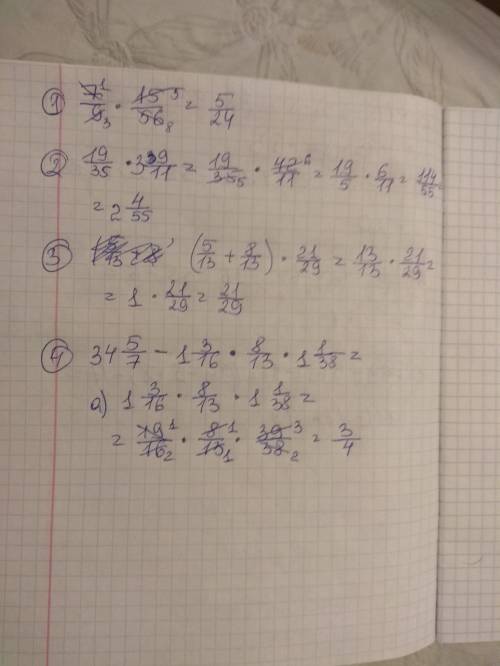 1) 7¹/9₃ · 15⁵/56₈ = 5/24
2) 19/35 · 3 9/11 = 19/35₅ · 42⁶/11 = 19/5 · 6/11 = 114/55 =
= 2 4/55
3) (5/13 + 8/13) · 21/29 = 13/13 · 21/29 =
= 1 · 21/29 = 21/29
4) 34 5/7 − 1 3/16 · 8/13 · 1 1/38 =
а) 1 3/16 · 8/13 · 1 1/38 =
= 19¹/16₂ · 8¹/13₁ · 39³/38₂ = 3/4